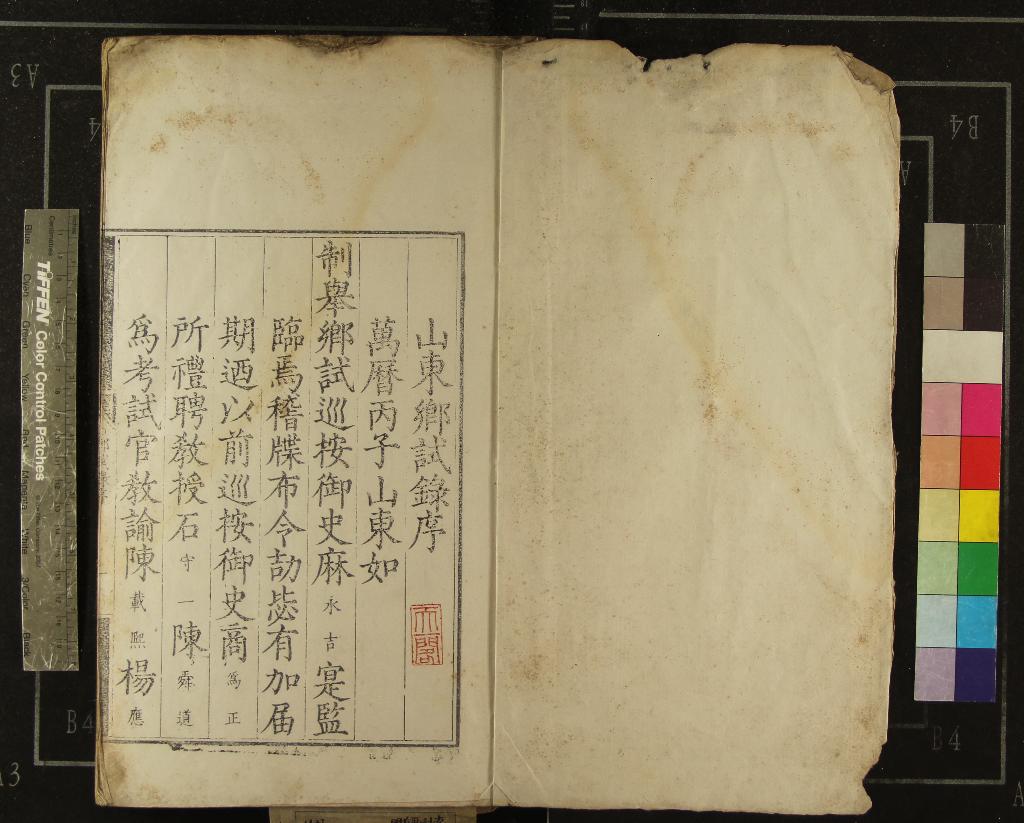 山東鄉試錄序
天閣
萬曆丙子山東如
制舉鄉試巡按御史麻永吉寔監
臨焉稽牒布令劼毖有加届
期迺以前巡按御史商爲正
所禮聘教授石守一陳舜道
爲考試官教諭陳載熙楊應
TIFFEN Color Control Patches
A3
B4
B4
B4
A3